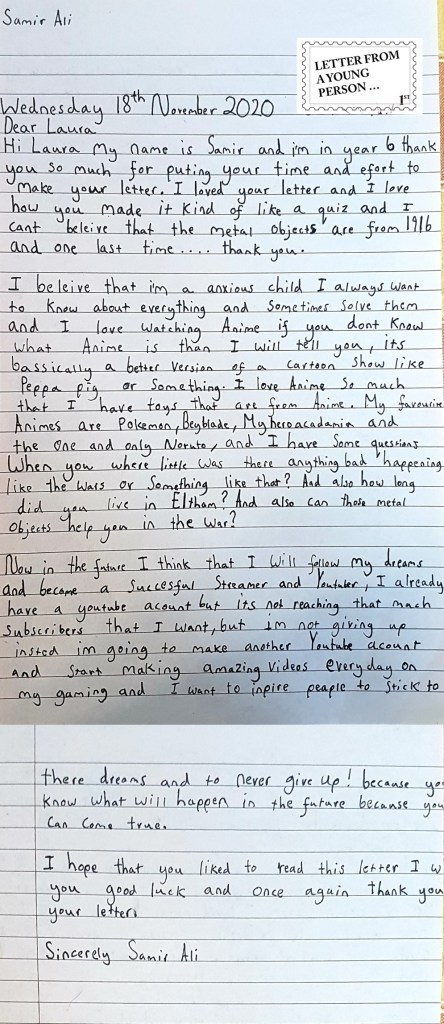 Samir Ali
LETTER FROM
A YOUNG
PERSON ...
1ST
Wednesday 18th November 2020
Dear Laura
Hi Laura my name is Samir and i'm in year 6 thank
you so much for puting your time and efort to
make your letter. I loved your letter and I love
how you made it kind of like a quiz and I
cant beleive that the metal objects are from 1916
and one last time.... thank you.
I beleive that i'm a anxious child I always want
to know about everything and sometimes solve them
and I love watching Anime if you dont know
what Anime is than I will tell you, its
bassically a better version of a cartoon show like
Peppa pig or something. I love Anime so much
that I have toys that are from Anime. My favourite
Animes are Pokemon, Beyblade, Myheroacadamia and
the one and only Noruto, and I have some questions
When you where little was there anything bad happening
like the wars or something like that? And also how long
did you live in Eltham? And also can those metal
objects help you in the war?
Now in the future I think that I will follow my dreams
and become a succesful Streamer and Youtuber, I already
have a youtube acount but its not reaching that much
subscribers that I want, but im not giving up
insted im going to make another Youtube acount
and start making amazing videos everyday on
my gaming and I want to inpire people to stick to
there dreams and to never give up! because yo
know what will happen in the future because you
can come true.
I hope that you liked to read this letter I w
you good luck and once again thank you
your letter.
Sincerely Samir Ali